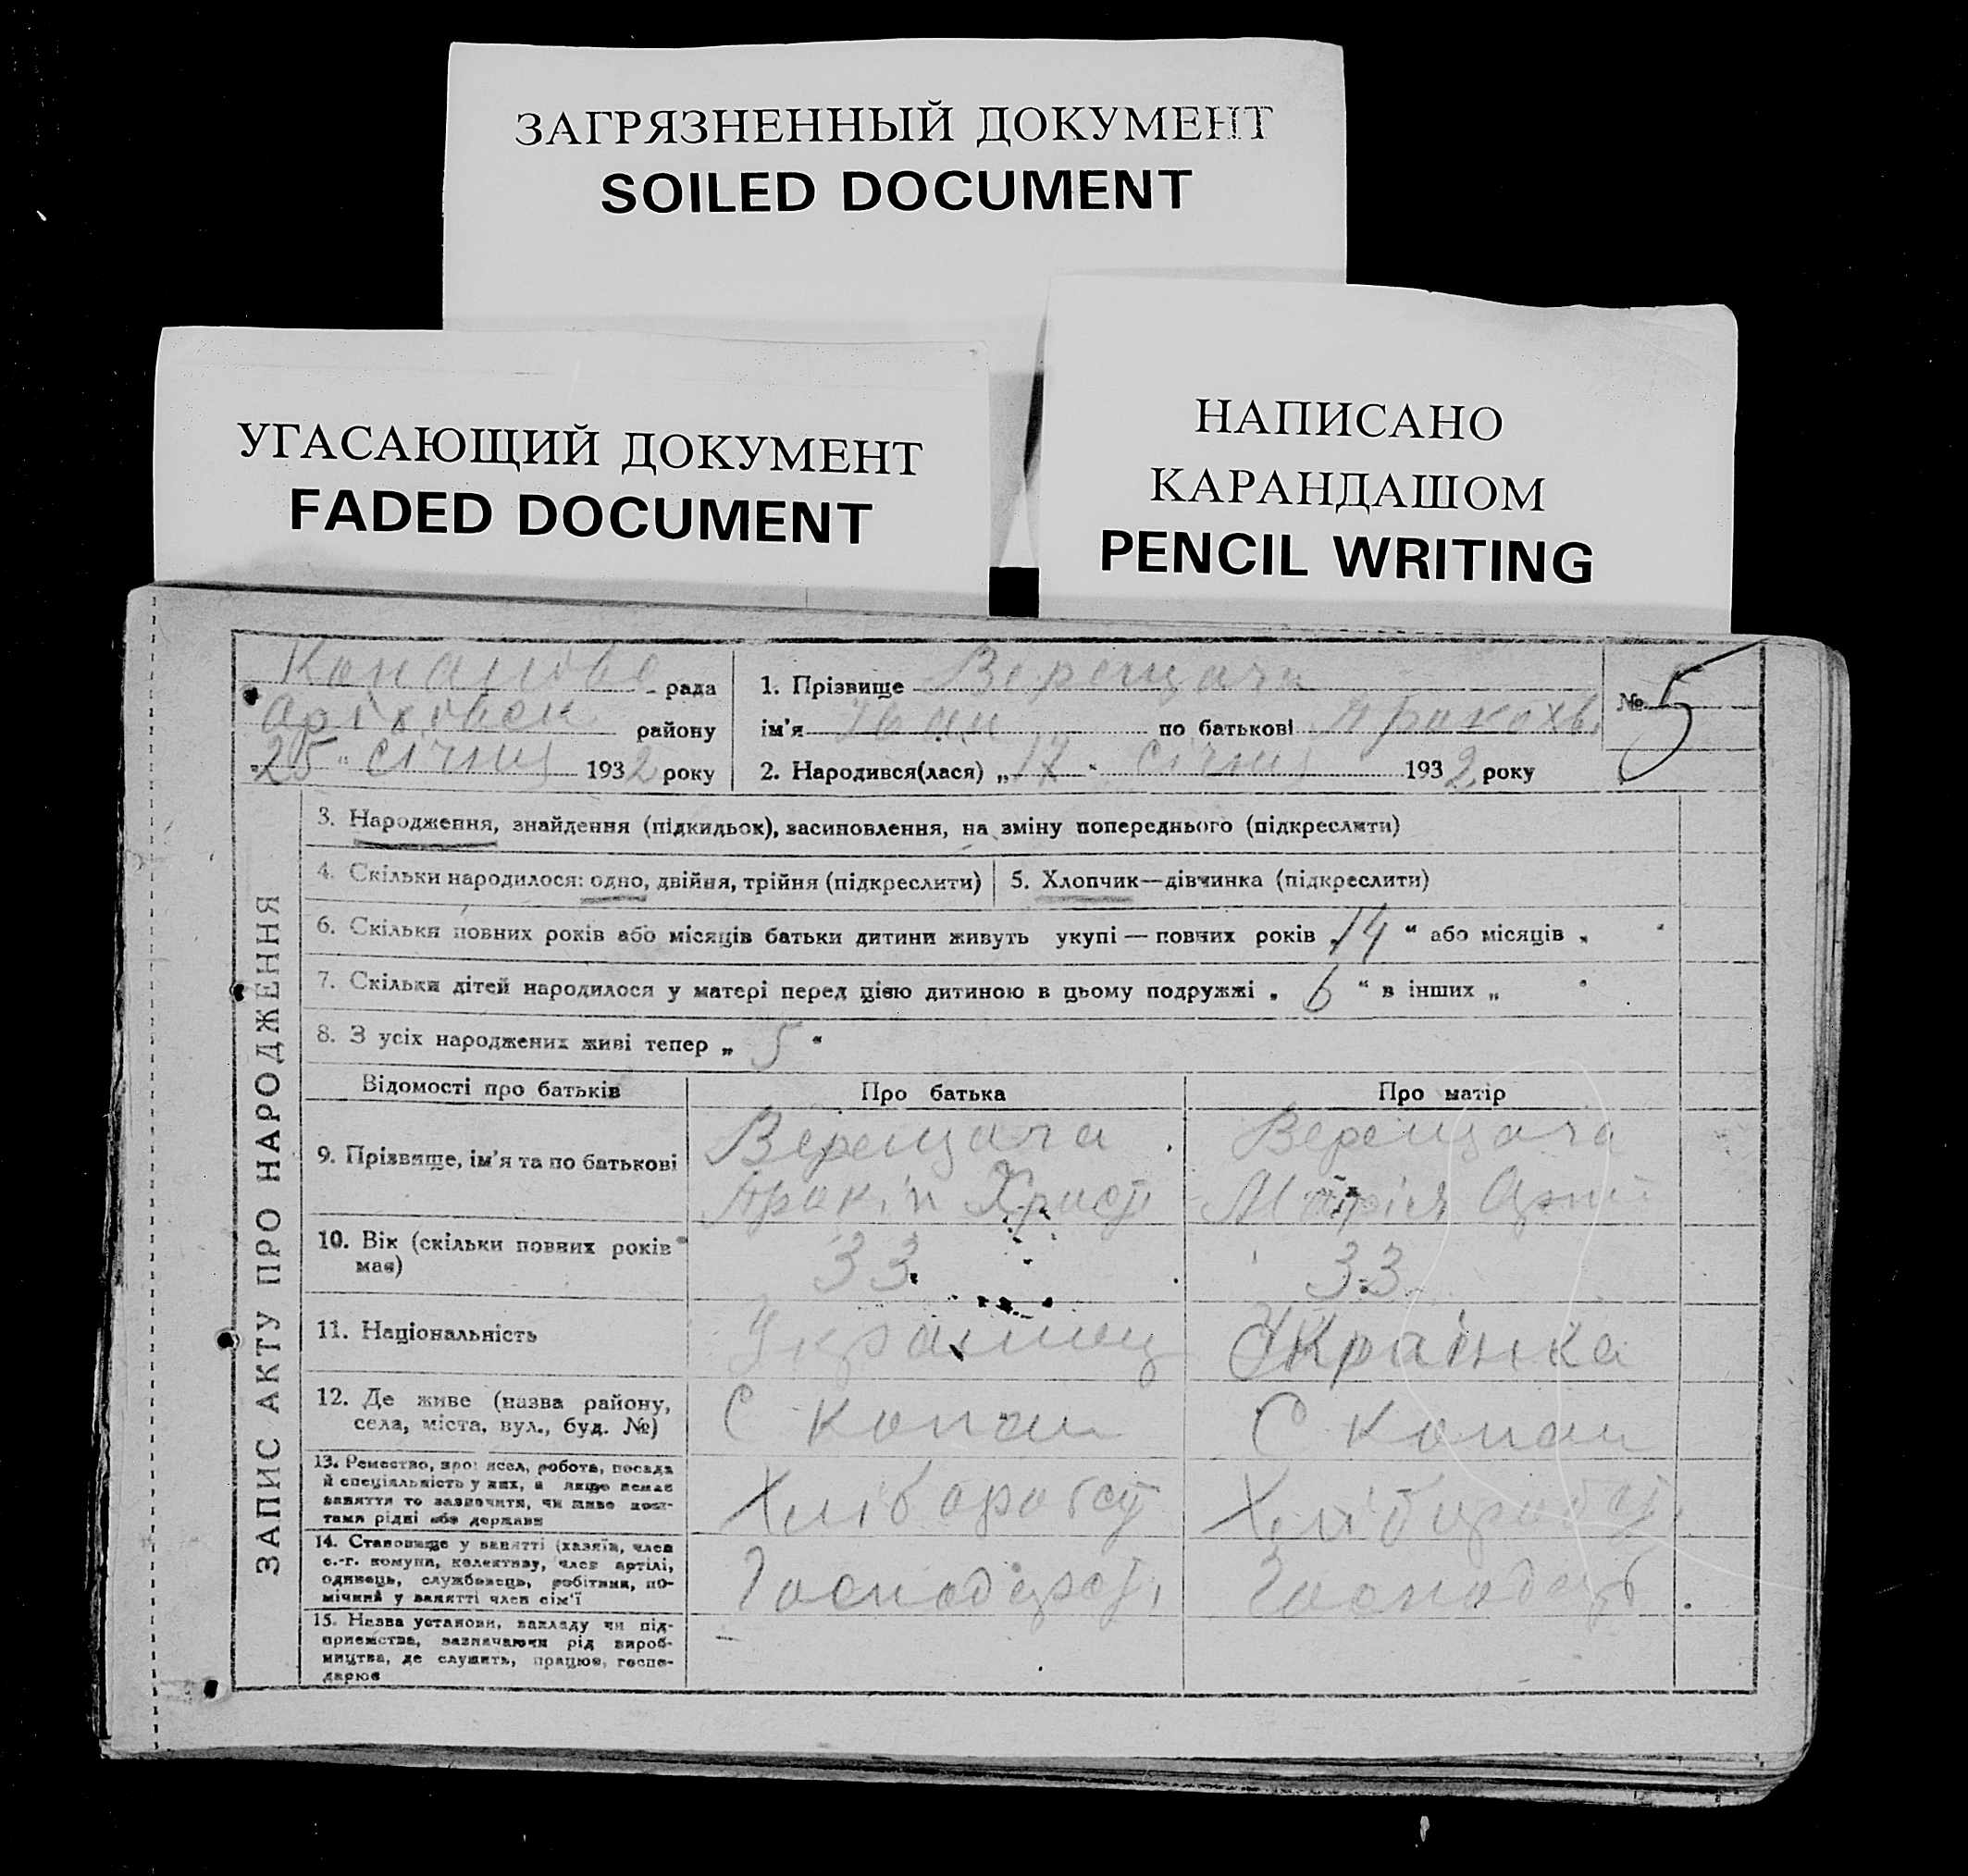 ЗАГРЯЗНЕННЫЙ ДОКУМЕНТ
SOILED DOCUMENT
УГАСАЮЩИЙ ДОКУМЕНТ
FADED DOCUMENT
НАПИСАНО
КАРАНДАШОМ
PENCIL WRITING
рада
району
„25“ січня 1932 року
1. Прізвище Верещага
ім'я Іван по батькові
2. Народився(лася) „17“ січня 1932 року
№ 5
ЗАПИС АКТУ ПРО НАРОДЖЕННЯ
3. Народження, знайдення (підкидьок), засиновлення, на зміну попереднього (підкреслити)
4. Скільки народилося: одно, двійня, трійня (підкреслити)
5. Хлопчик—дівчинка (підкреслити)
6. Скільки повних років або місяців батьки дитини живуть укупі — повних років „14“ або місяців „ “
7. Скільки дітей народилося у матері перед цією дитиною в цьому подружжі „6“ в інших „ “
8. З усіх народжених живі тепер „5“
Відомості про батьків
Про батька
Про матір
9. Прізвище, ім'я та по батькові
Верещага
Верещага
Марія
10. Вік (скільки повних років
має)
33
33
11. Національність
Українец
Українка
12. Де живе (назва району,
села, міста, вул., буд. №)
С Копан
С Копан
13. Ремество, професія, робота, посада
й спеціальність у них, а якщо немає
заняття то зазначити, чи живе кош-
тами рідні або держави
14. Становище у занятті (хазяїн, член
с.-г. комуни, колективу, член артілі,
одинець, службовець, робітник, по-
мічний у занятті член сім'ї
15. Назва установи, закладу чи під-
приємства, зазначаючи рід вироб-
ництва, де служить, працює, госпо-
дарює
—